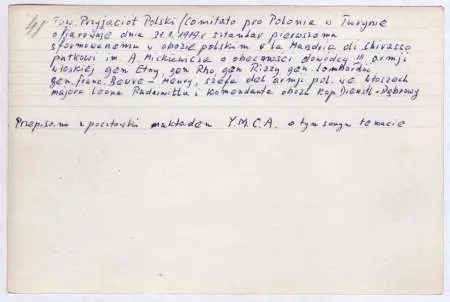 Tow. Przyjaciół Polski /Comitato pro Polonia w Turynie
ofiarowuje dnia 21.1.1919 r sztandar pierwszemu
sformowanemu w obozie polskim w La Mandria di Chivasso
pułkowi im. A. Mickiewicza w obecności dowódcy III armji
włoskiej gen Etny gen Rho gen Rizzy gen. Lombardii
gen. franc. Beuvre - Henry, szefa del armji pol. we Włoszech
majora Leona Radziwiłła i komendanta obozu kap Dienstl-Dąbrowy
Przepisano z pocztówki nakładem Y.M.C.A. o tym samym temacie